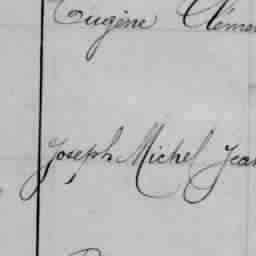 Eugène Clémen
Joseph Michel Jean